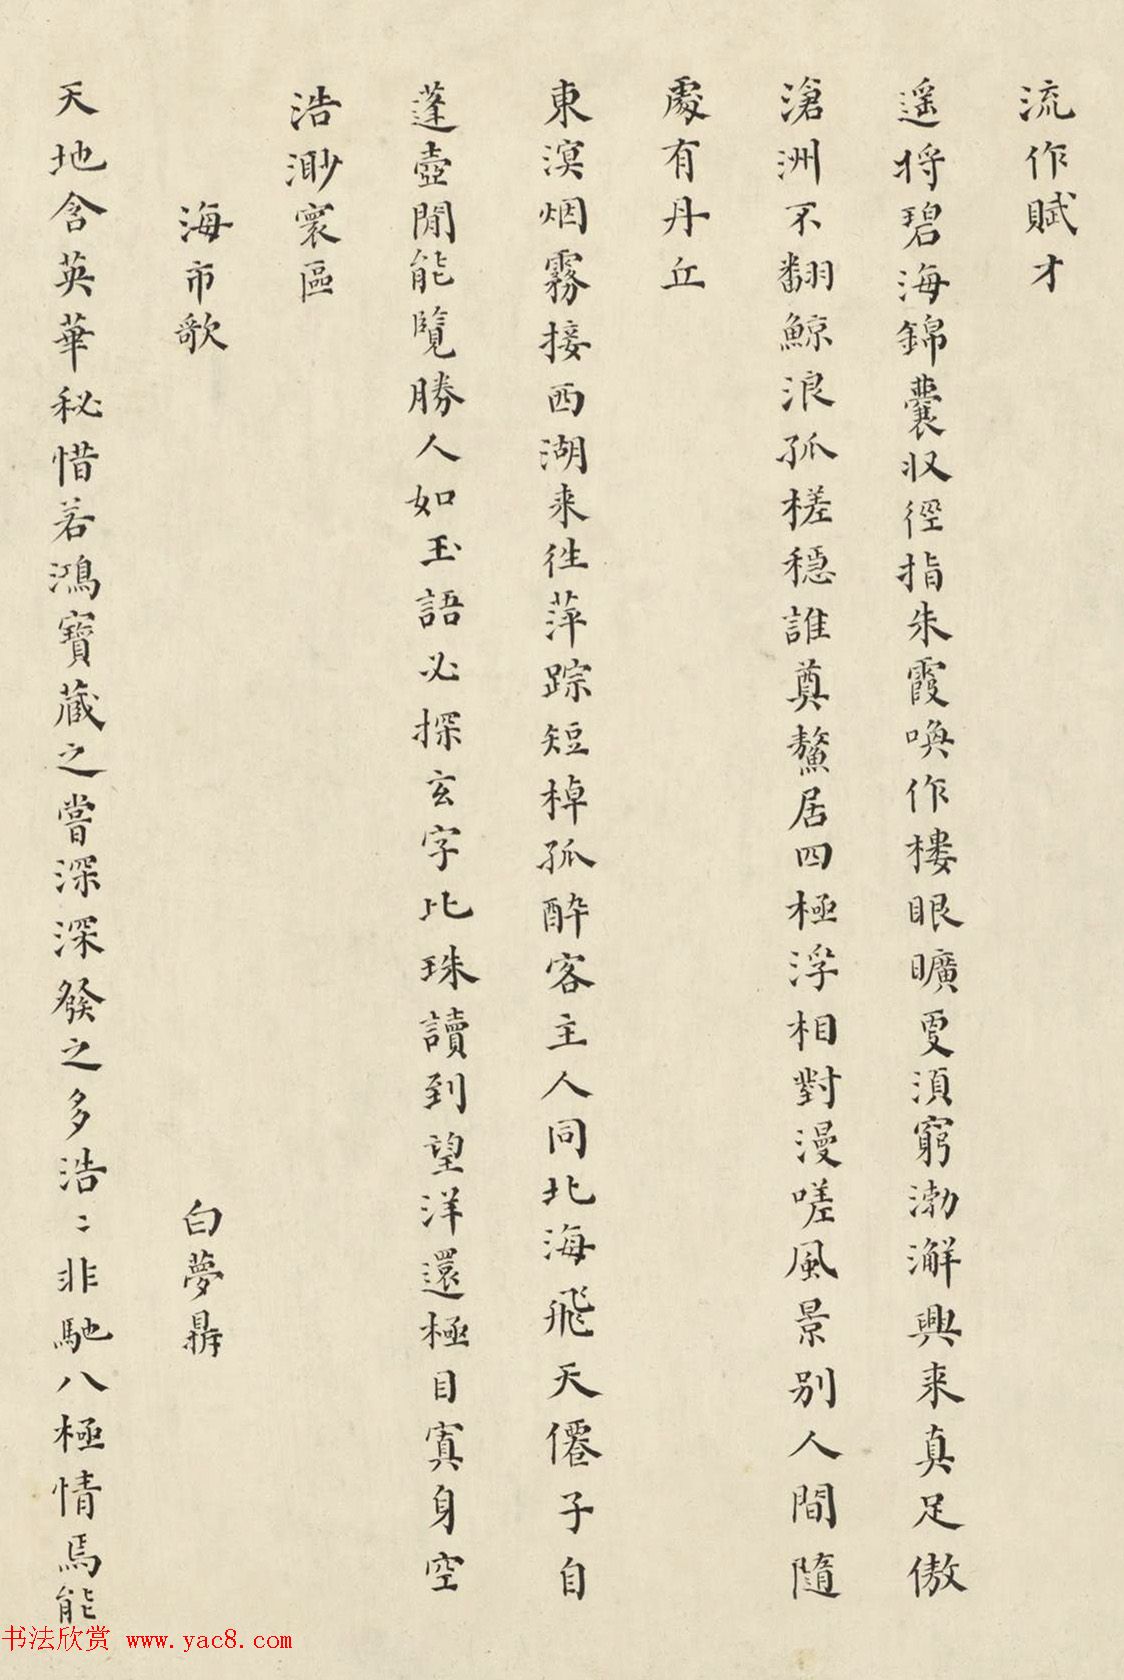 流作賦才
遥将碧海錦囊収徑指朱霞喚作樓眼曠更須窮渤澥興来真足傲
滄洲不翻鯨浪孤槎穩誰奠鰲居四極浮相對漫嗟風景別人間隨
處有丹丘
東溟烟霧接西湖来往萍踪短棹孤醉客主人同北海飛天僊子自
蓬壺閒能覽勝人如玉語必探玄字比珠讀到望洋還極目寘身空
浩渺寰區
海市歌
白夢鼐
天地含英華秘惜若鴻寶藏之嘗深深發之多浩〻非馳八極情焉能
书法欣赏 www.yac8.com